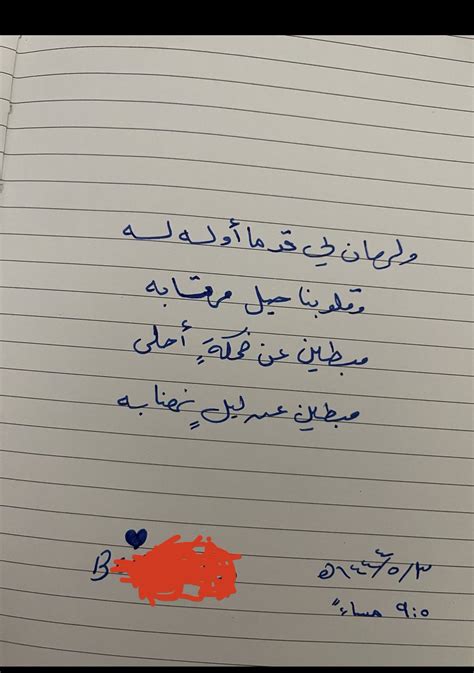 ولهان لي قد ما أوله له
وقلوبنا حيل مرتابه
مبطين عن ضحكةٍ أحلى
مبطين عن ليلٍ نهنابه
B
٩:٥ مساءً